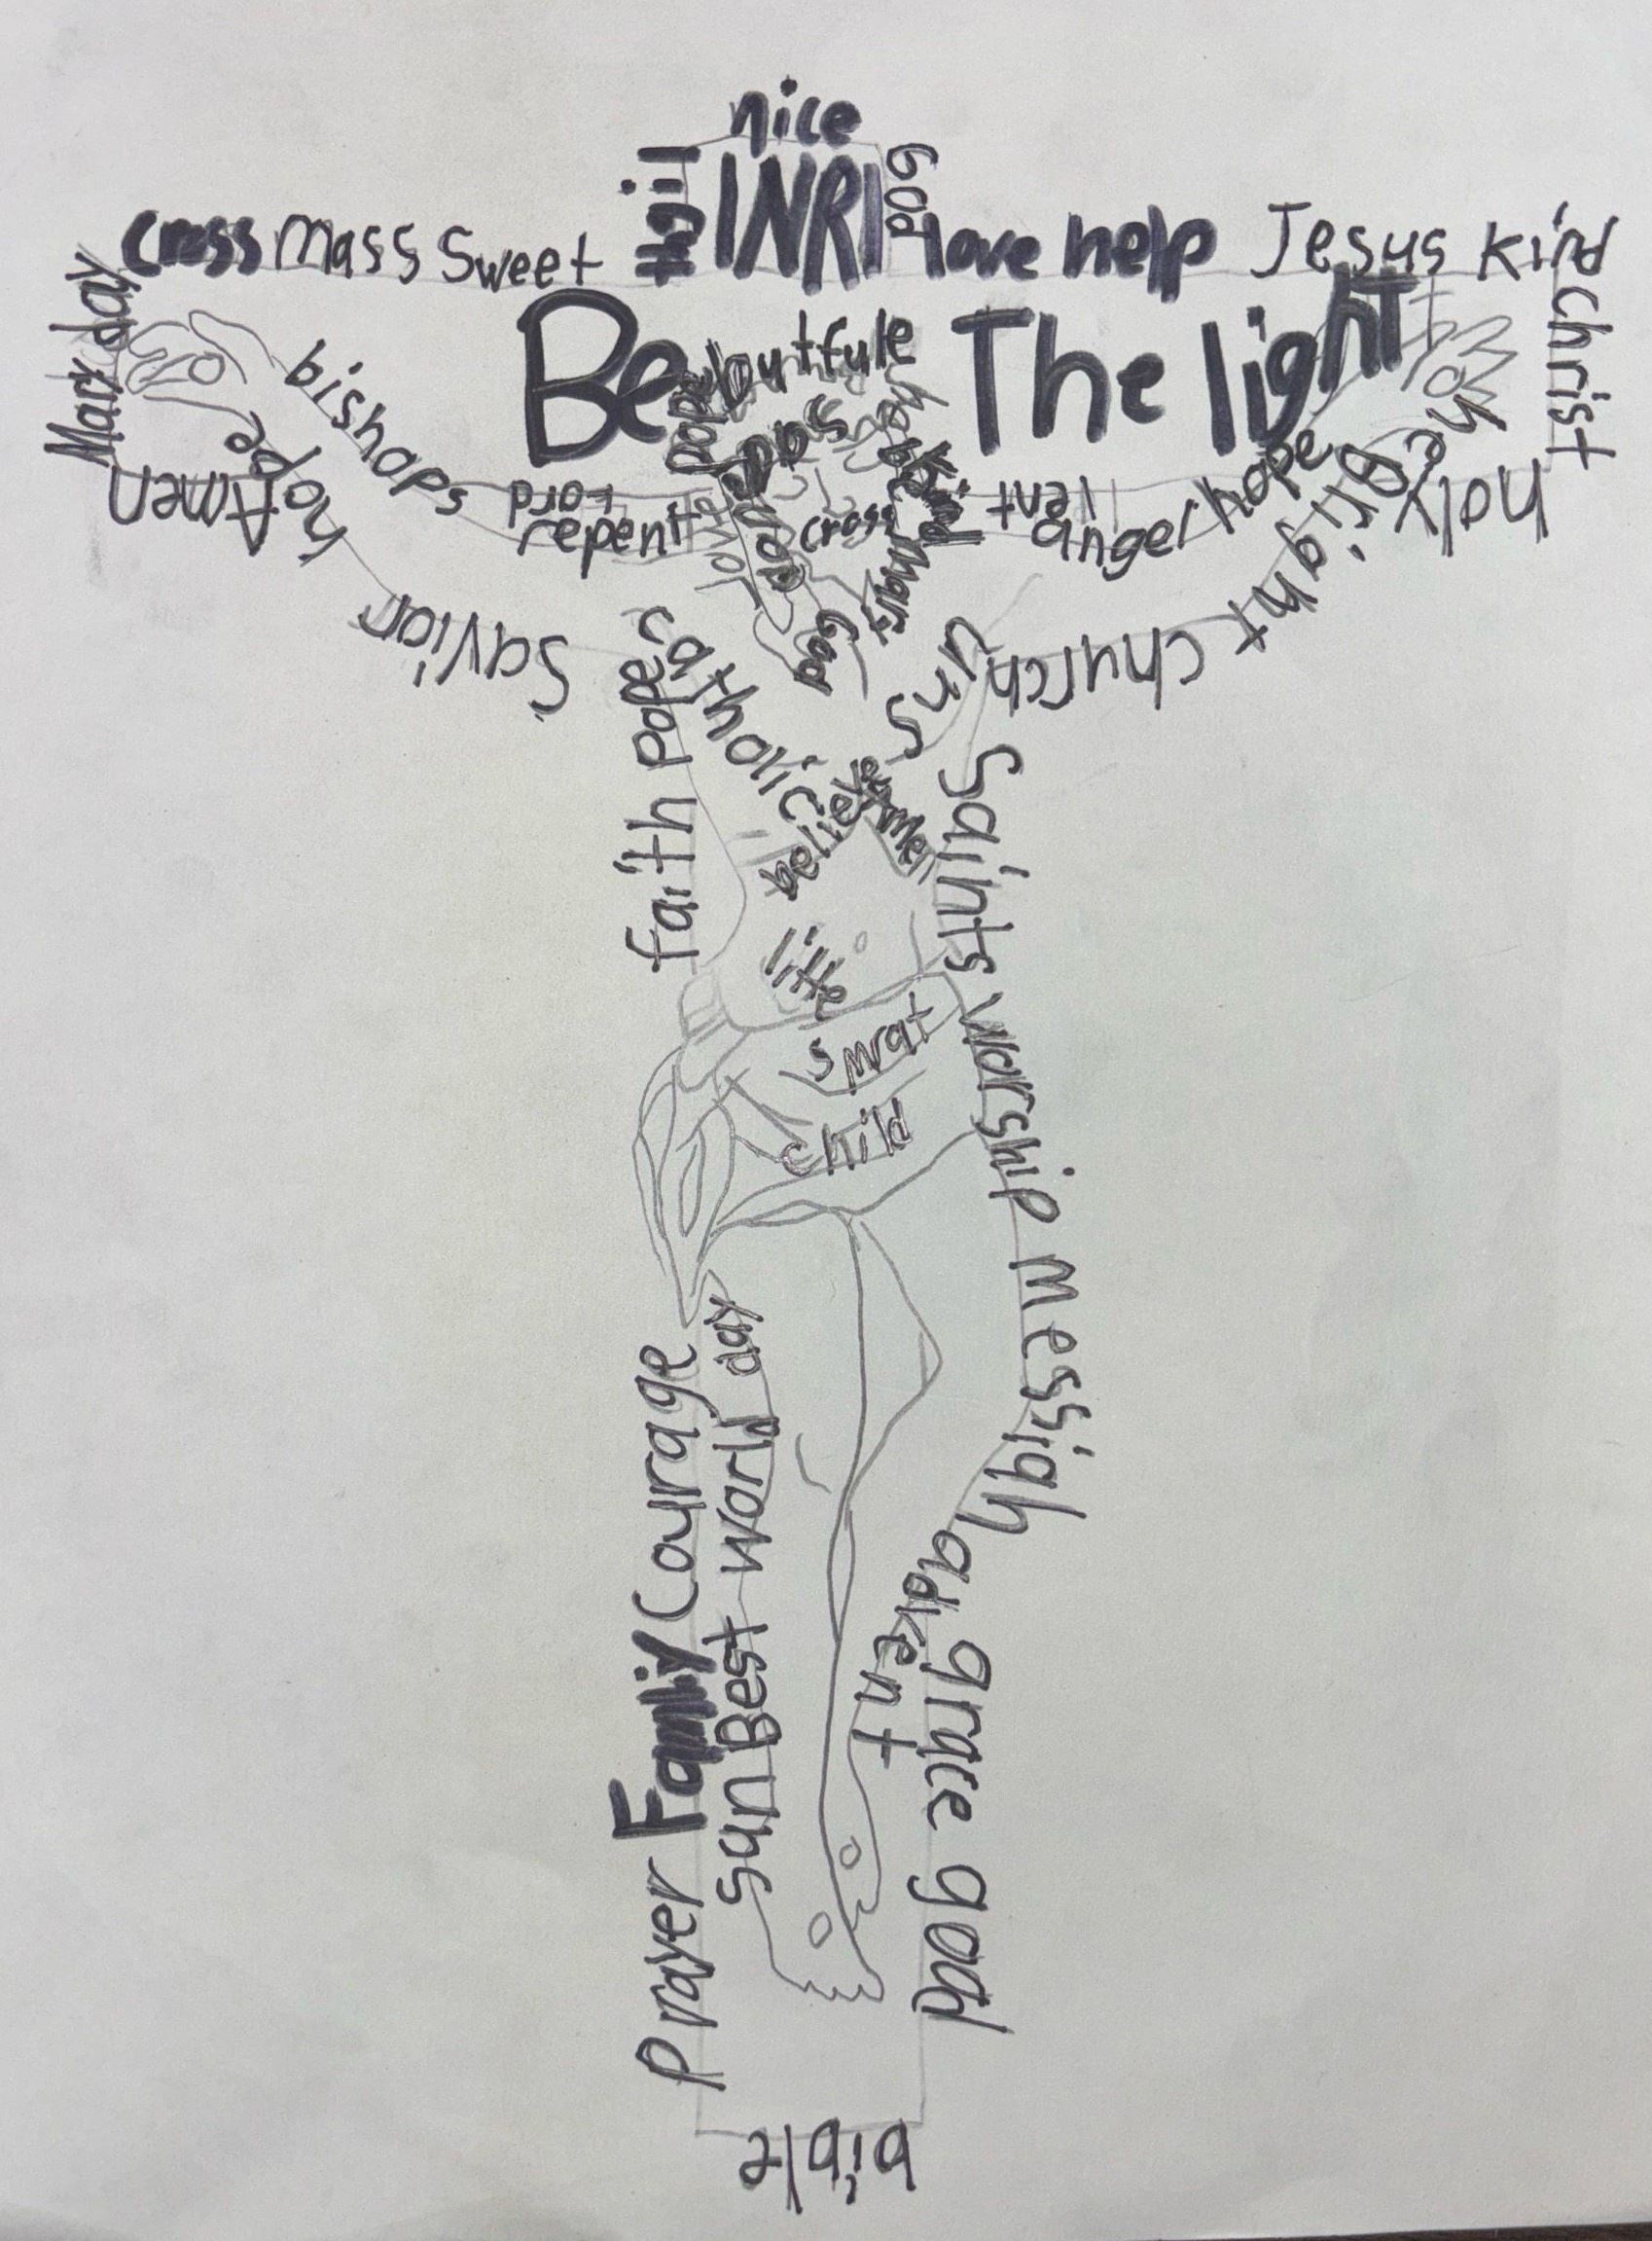 nice
light
INRI
God
cross mass Sweet
love help Jesus kind
Be The light
Mary day
christ
butfule
pope
bishops
hope
Amen
repent
love
cross
kind
Mary
God
lent
angel hope
Bright
holy
church
Savior
faith Pope
catholic
sun
Belief
Saints worship messiah
smrat
child
Prayer Family Courage
sun Best World day
advent
grace good
bible